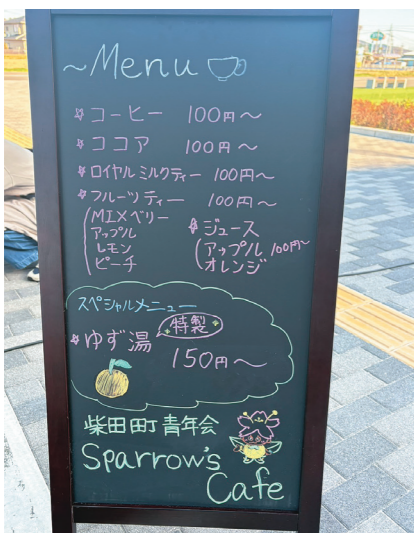 ~Menu
コーヒー 100円~
ココア 100円~
ロイヤルミルクティー 100円~
フルーツティー 100円~
MIXベリー
アップル
レモン
ピーチ
ジュース
アップル 100円~
オレンジ
スペシャルメニュー
ゆず湯 特製
150円~
柴田町青年会
Sparrow's
Cafe